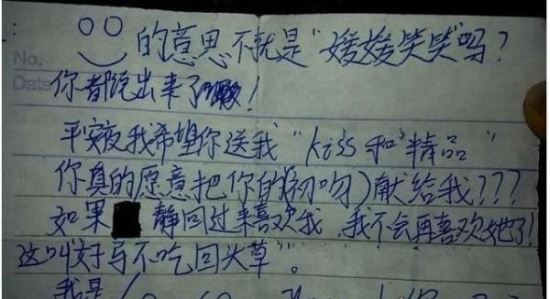 No.
Date
的意思不就是"媛媛笑笑"吗?
你都说出来了!
平安夜我希望你送我"kiss和精品"
你真的愿意把你的(初吻)献给我???
如果 静回过来喜欢我,我不会再喜欢她了!
这叫"好马不吃回头草"。
我是